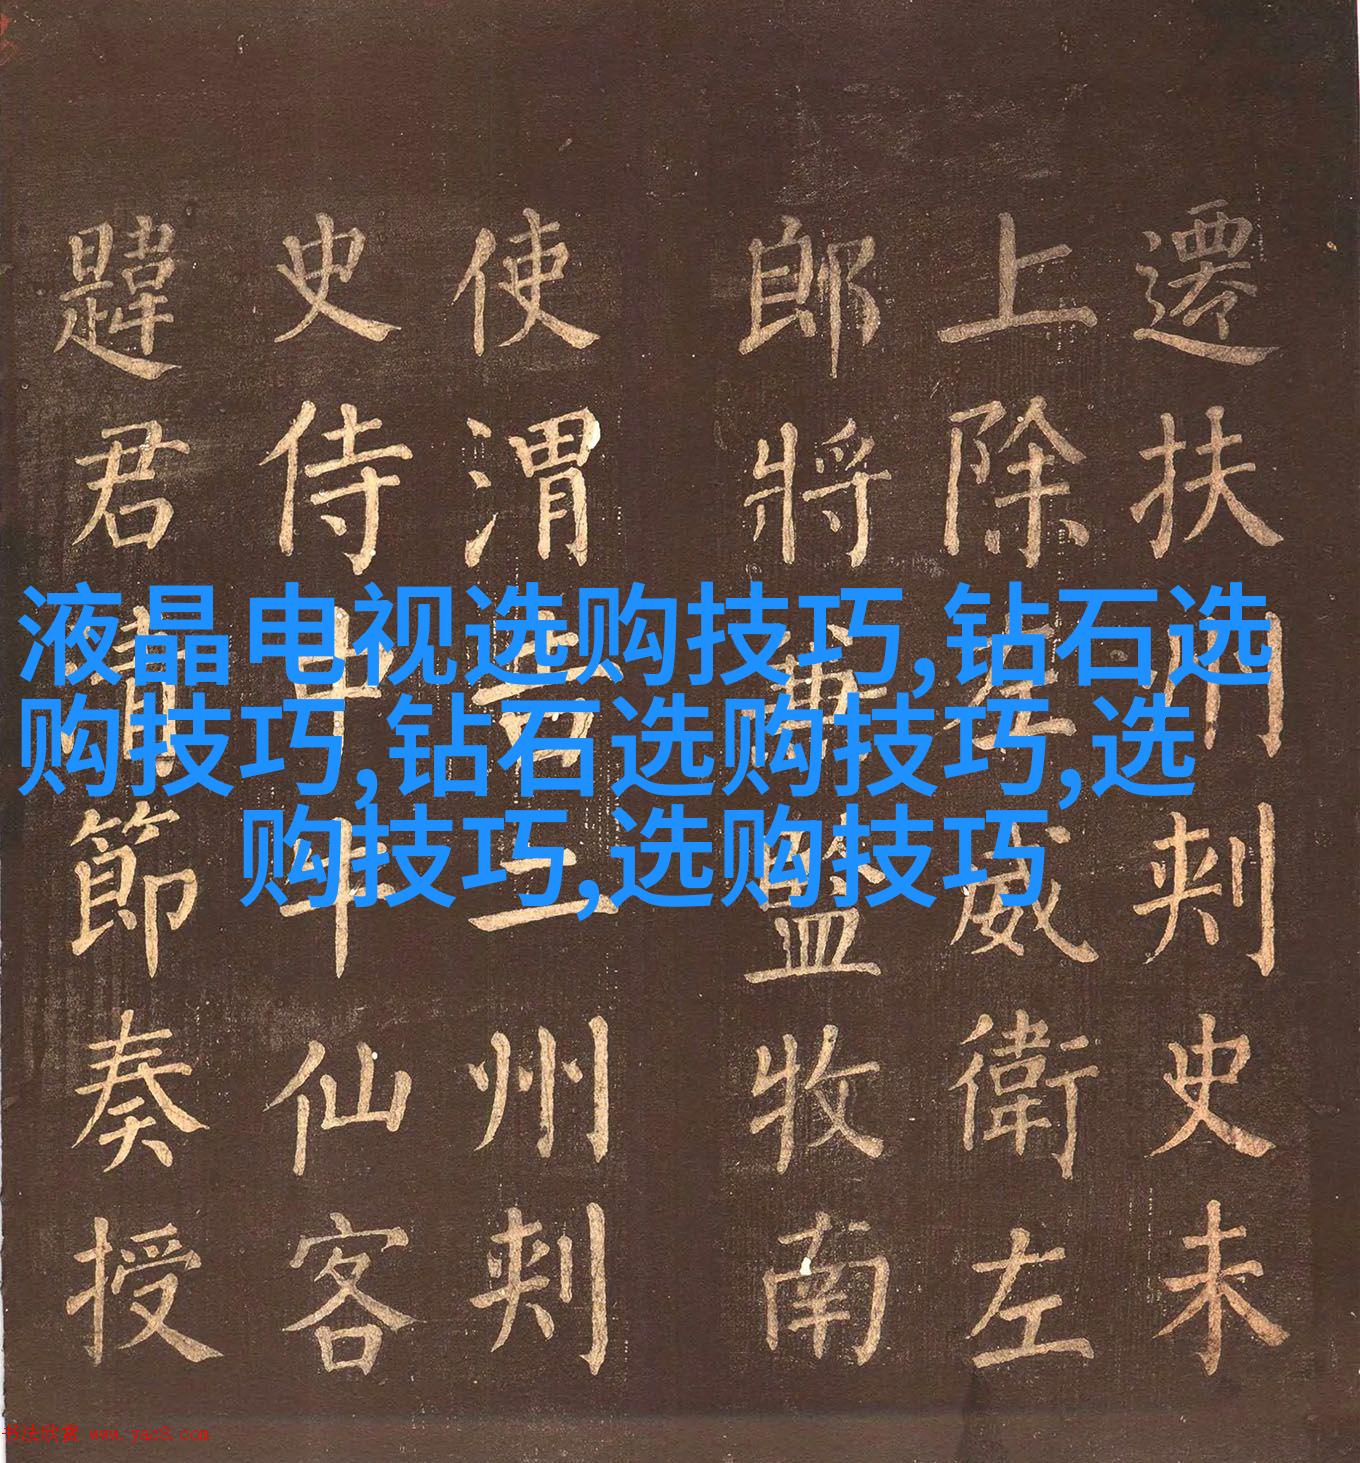 液晶电视选购技巧,钻石选
购技巧,钻石选购技巧,选
购技巧,选购技巧
遷扶門刾史未
上除左威衛左
郎將監牧南
使渭二州刾
史侍中牛仙客
韙君清節奏授
书法欣赏 www.yac8.com